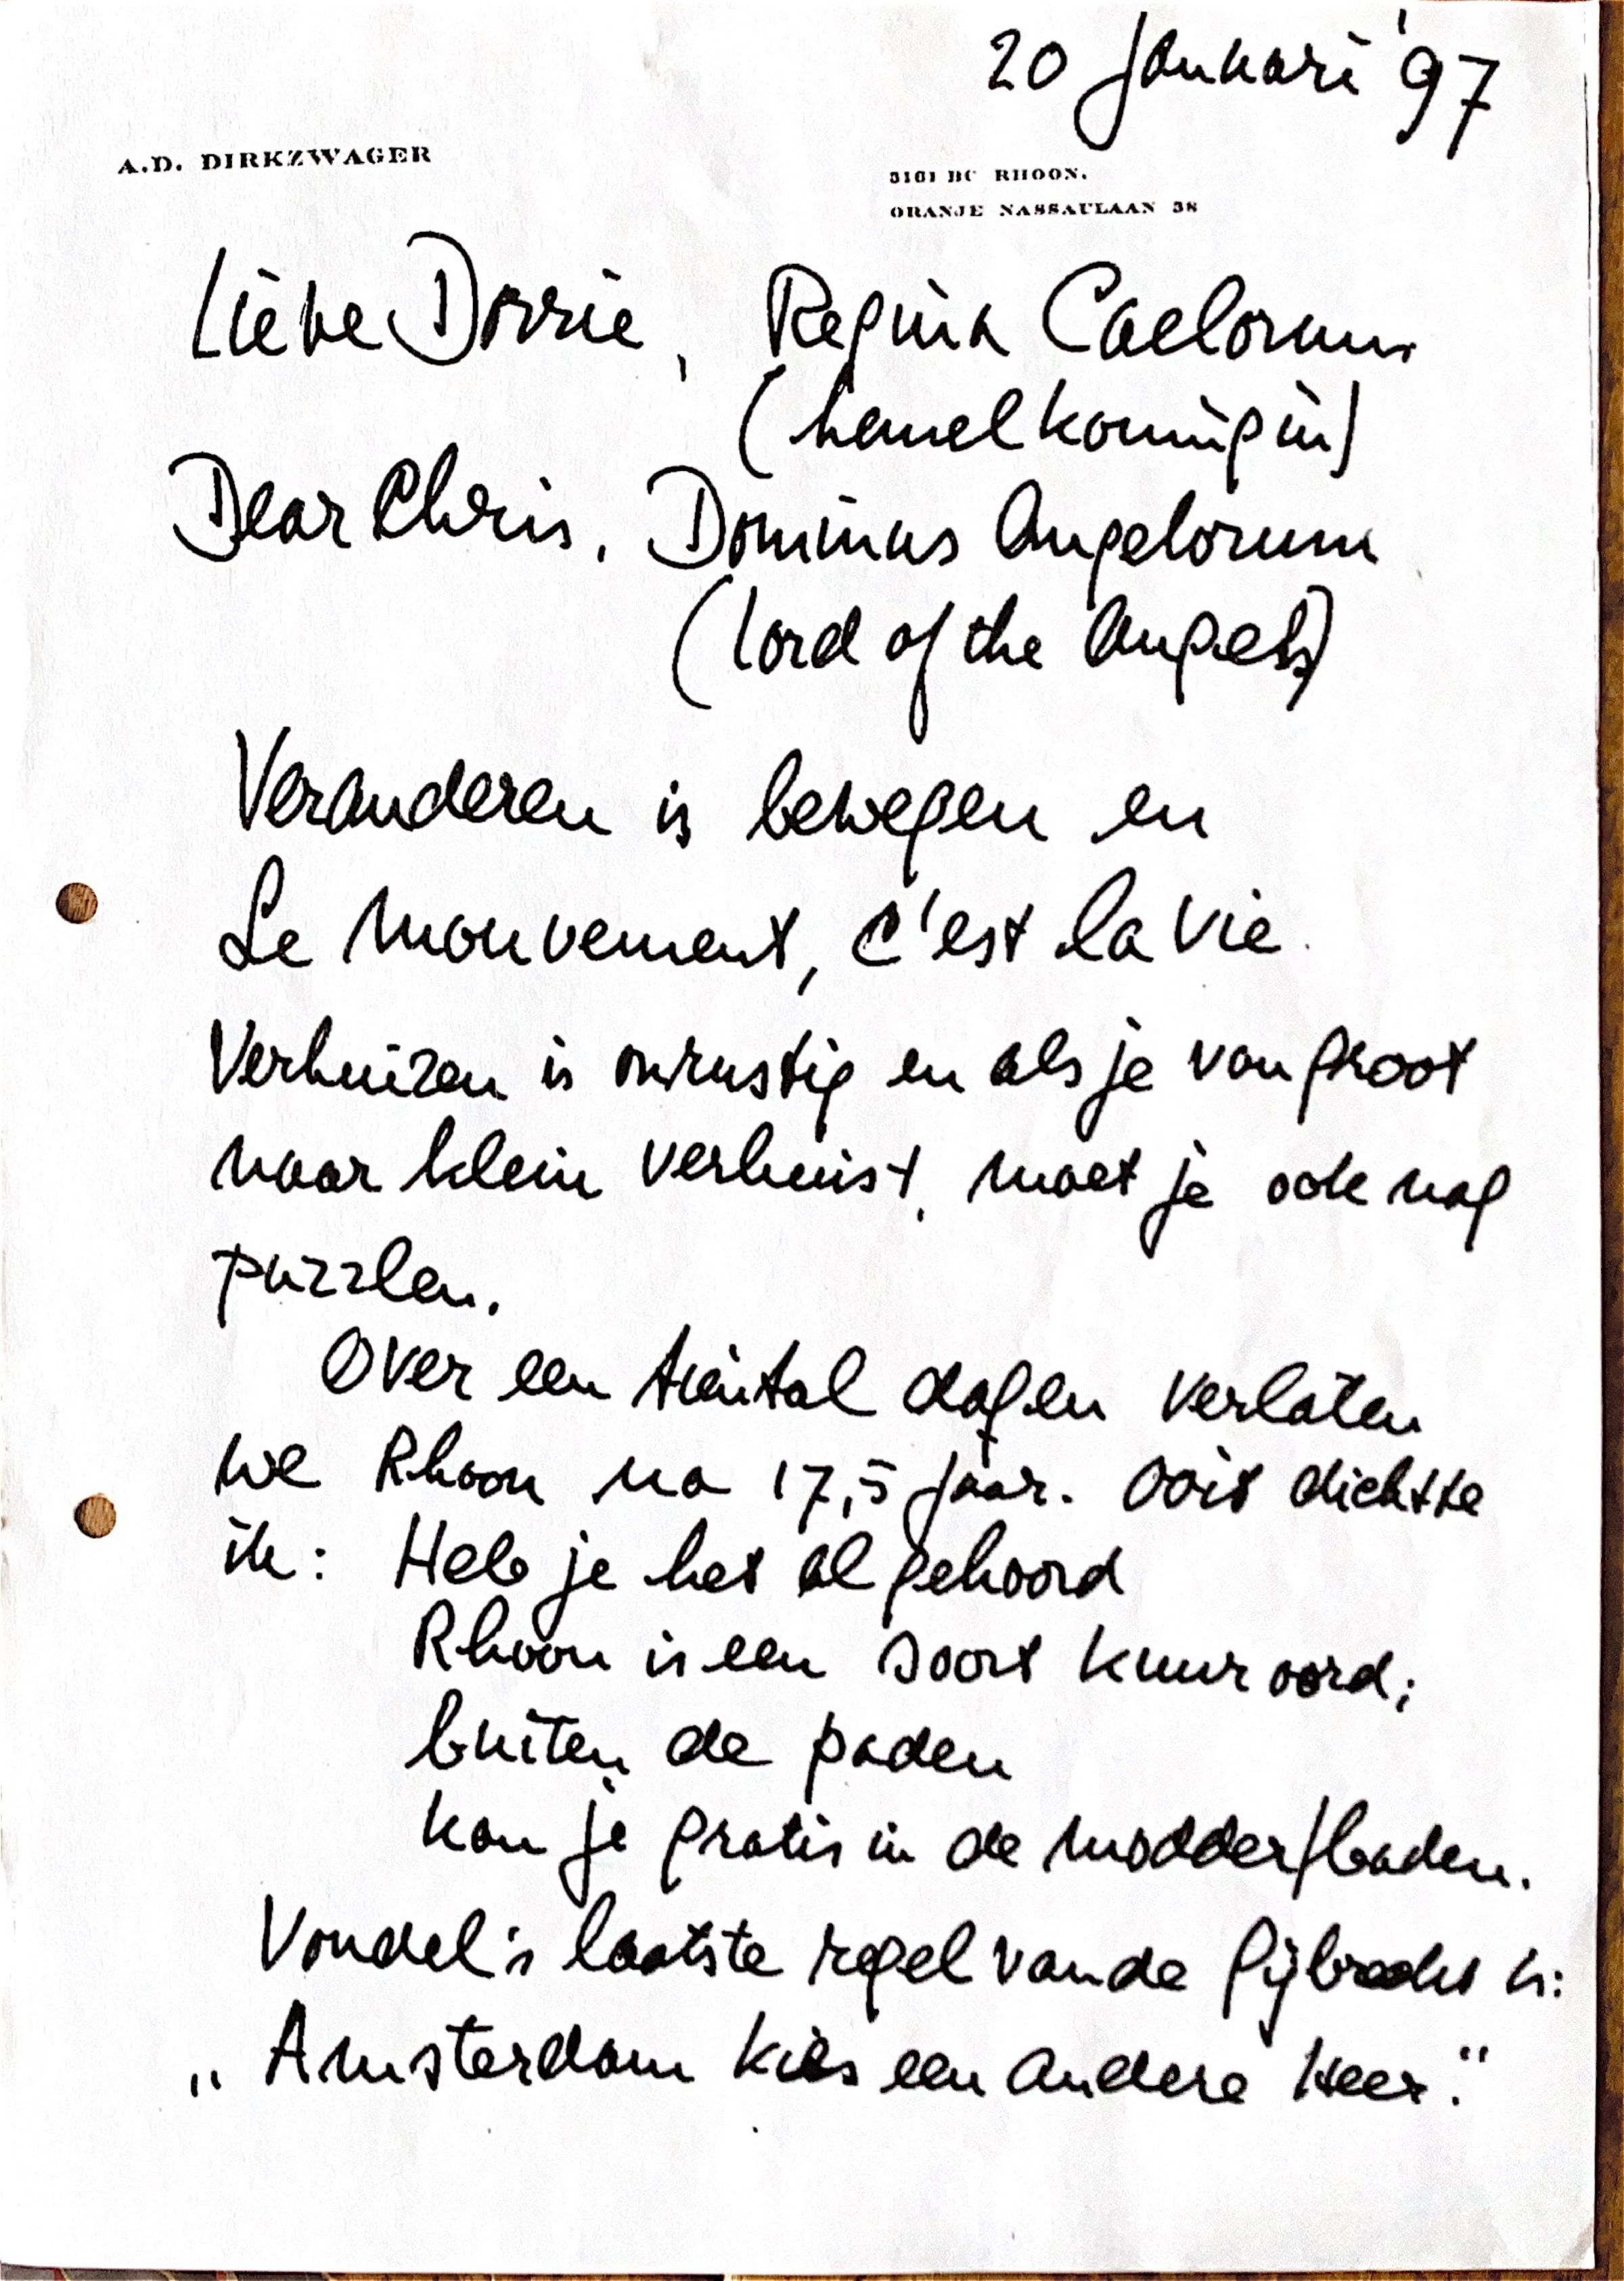 20 Januari '97
A.D. DIRKZWAGER
3161 BC RHOON.
ORANJE NASSAULAAN 38
Lieve Dorrie, Regina Caelorum
(hemelkoningin)
Dear Chris, Dominus Angelorum
(Lord of the Angels)
Veranderen is bewegen en
Le mouvement, c'est la vie.
Verhuizen is onrustig en als je van groot
naar klein verhuist, moet je ook nog
puzzlen.
Over een tiental dagen verlaten
we Rhoon na 17,5 jaar. Ooit dichtte
ik: Heb je het al gehoord
Rhoon is een soort kuuroord;
buiten de paden
kan je gratis in de modder/baden.
Vondel's laatste regel van de Gijbrecht is:
„Amsterdam kies een andere Heer."